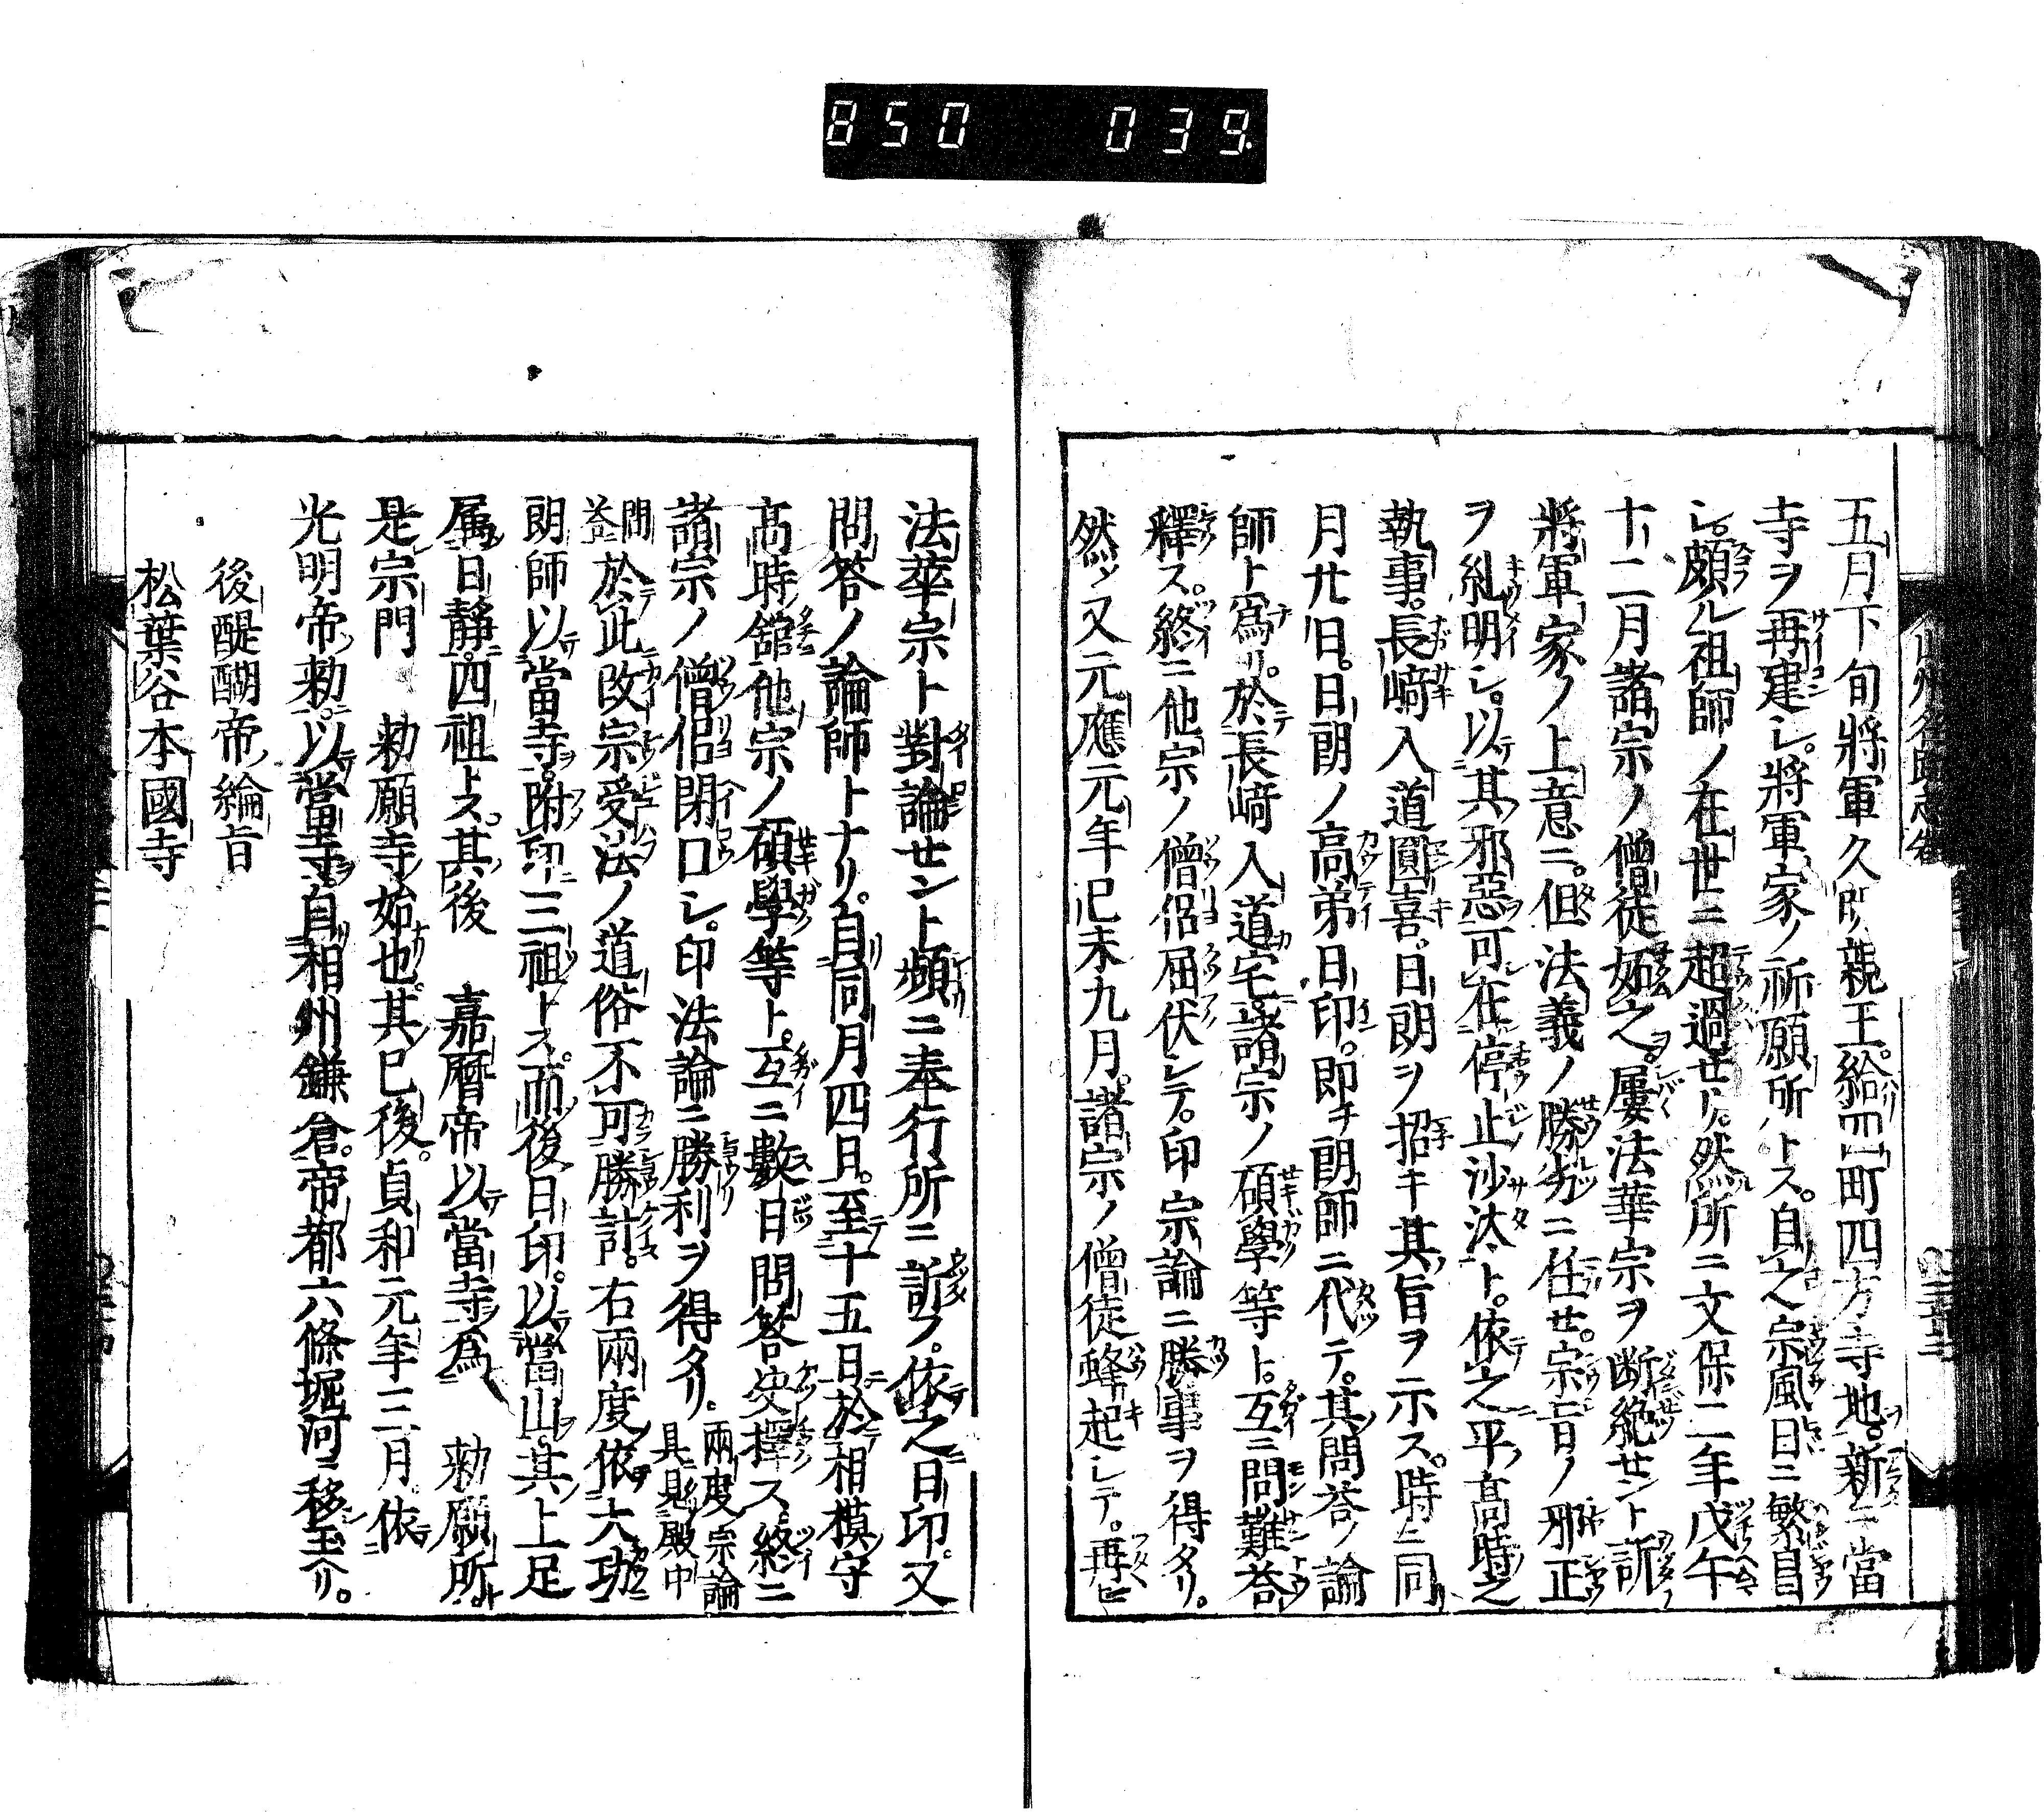 850 039
五月下旬將軍久明親王給四町四方寺地新ニ當
寺ヲ再建シ將軍家ノ祈願所トス自之宗風日ニ繁昌
シ頗ル祖師ノ在世ニ超過せリ然所ニ文保二年戊午
十二月諸宗ノ僧徒妬之屢法華宗ヲ断絶せント訴
將軍家ノ上意ニ但法義ノ勝劣ニ任せ宗旨ノ邪正
ヲ糺明シ以其邪惡可在停止沙汰ト依之平高時之
執事長﨑入道圓喜日朗ヲ招キ其旨ヲ示ス時ニ同
月廿日日朗ノ高弟日印即チ朗師ニ代テ其問答ノ論
師ト爲リ於長﨑入道宅諸宗ノ碩學等ト互ニ問難答
釋ス終ニ他宗ノ僧侶屈伏シテ印宗論ニ勝事ヲ得タリ
然〆又元應元年己未九月諸宗ノ僧徒蜂起シテ再ヒ
法華宗ト對論せント頻ニ奉行所ニ訴フ依之日印又
問答ノ論師トナリ自同月四日至十五日於相模守
髙時舘他宗ノ碩學等ト互ニ數日問答决擇ス終ニ
諸宗ノ僧侶閉口シ印法論ニ勝利ヲ得タリ兩度宗論具見殿中
問荅於此改宗受法ノ道俗不可勝計右兩度依大功
朗師以當寺附印三祖トス而後日印以當山其上足
属日靜四祖トス其後 嘉曆帝以當寺爲 勅願所
是宗門 勅願寺始也其已後貞和元年三月依
光明帝勅以當寺自相州鎌倉帝都六條堀河ニ移玉ヘリ
後醍醐帝綸旨
松葉谷本國寺